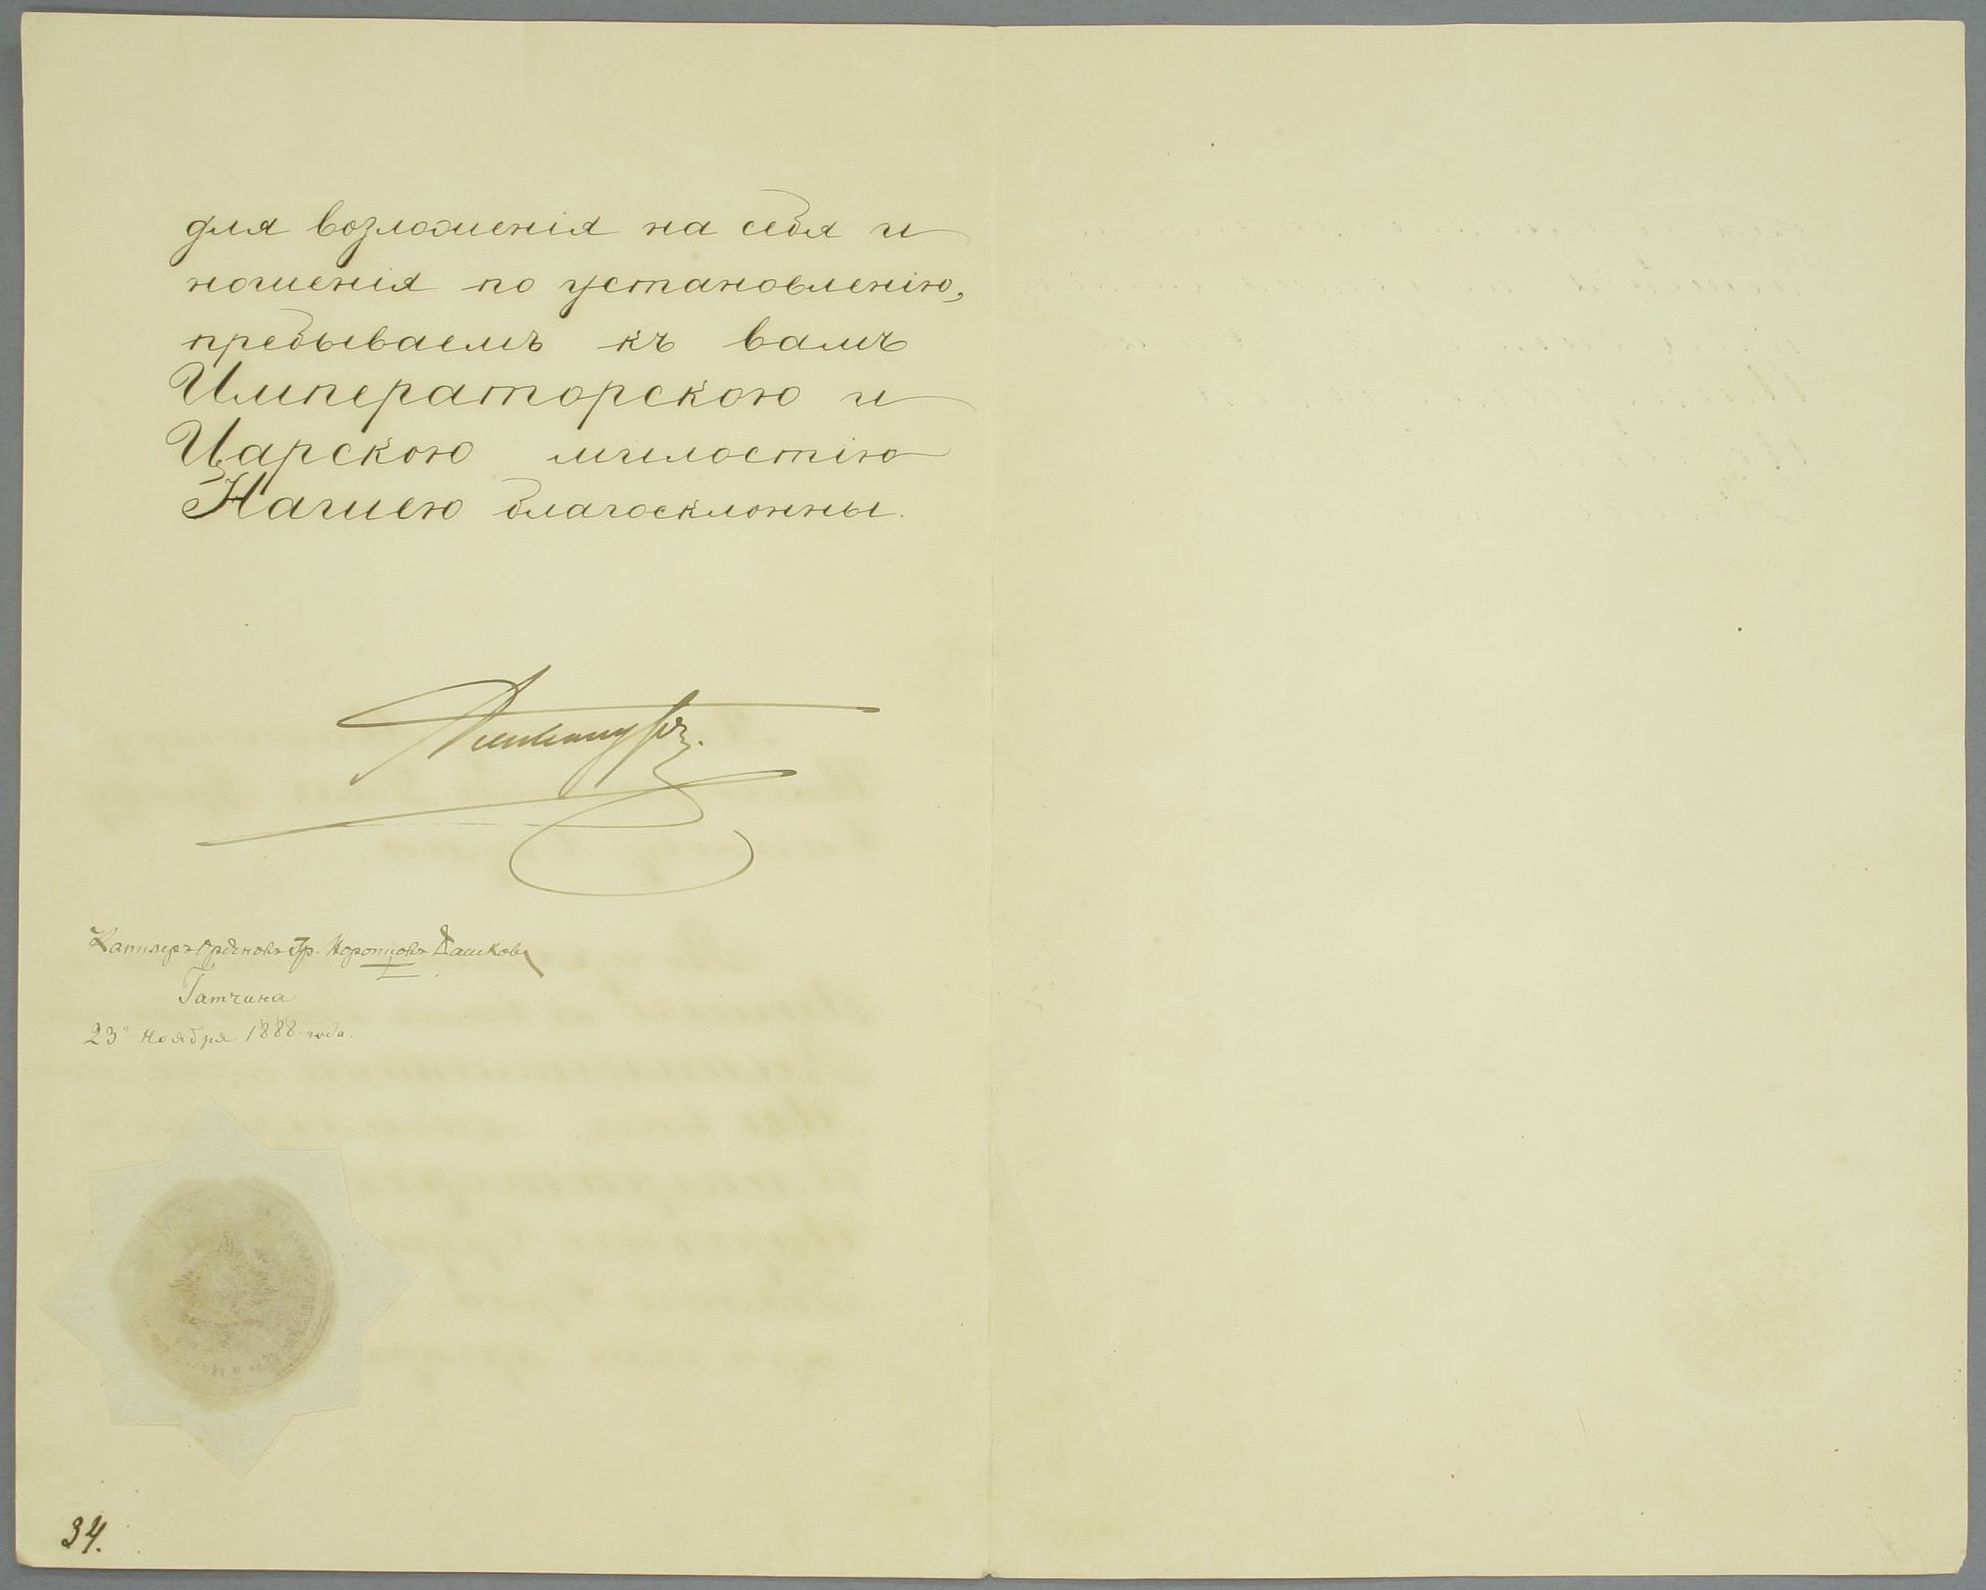 для возложенія на себя и
ношенія по установленію,
пребываемъ къ вамъ
Императорскою и
Царскою милостію
Нашею благосклонны.
Александръ.
Канцлеръ Орденовъ Гр. Воронцовъ Дашковъ
Гатчина
23" Ноября 1888 года.
34.